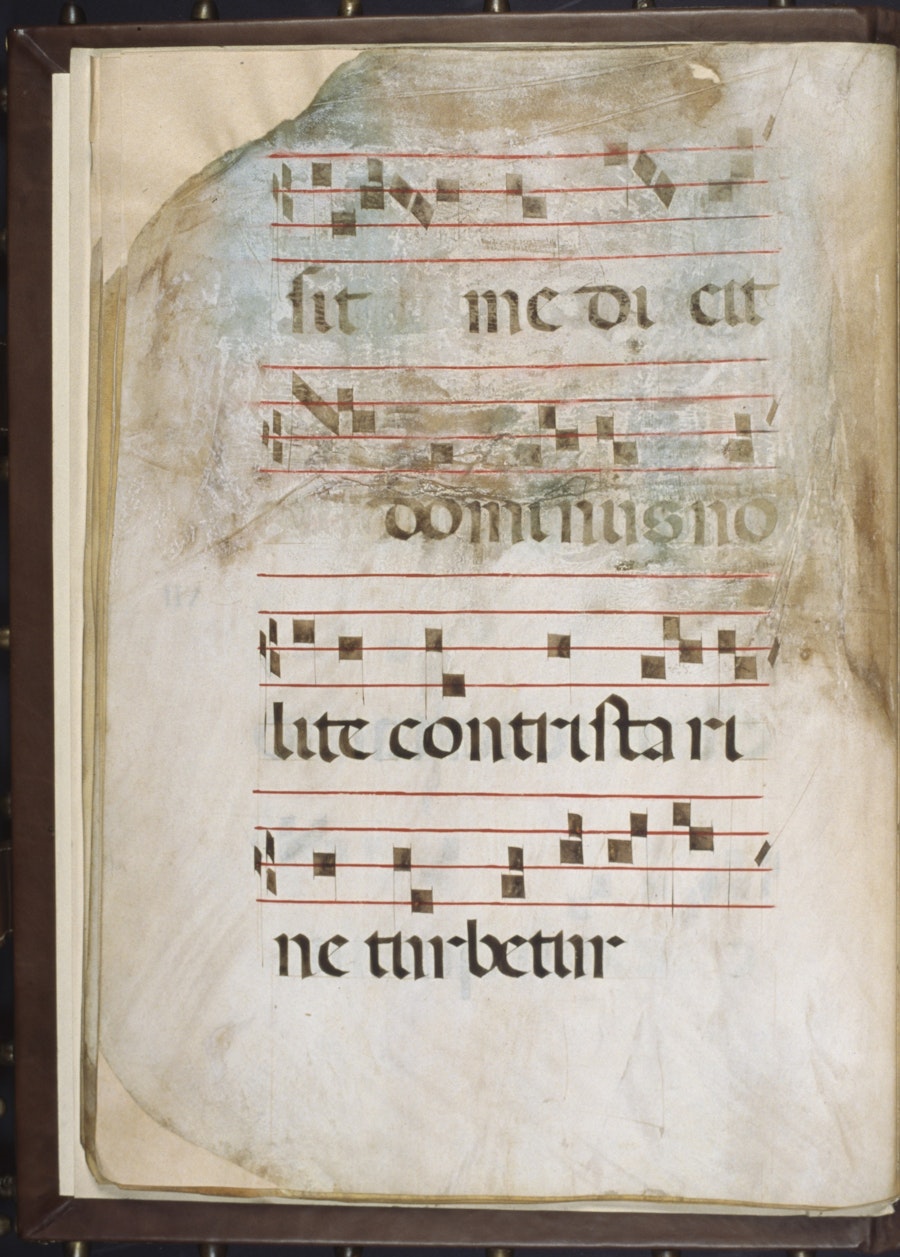 sit me di cit
dominus no
lite contristari
ne turbetur